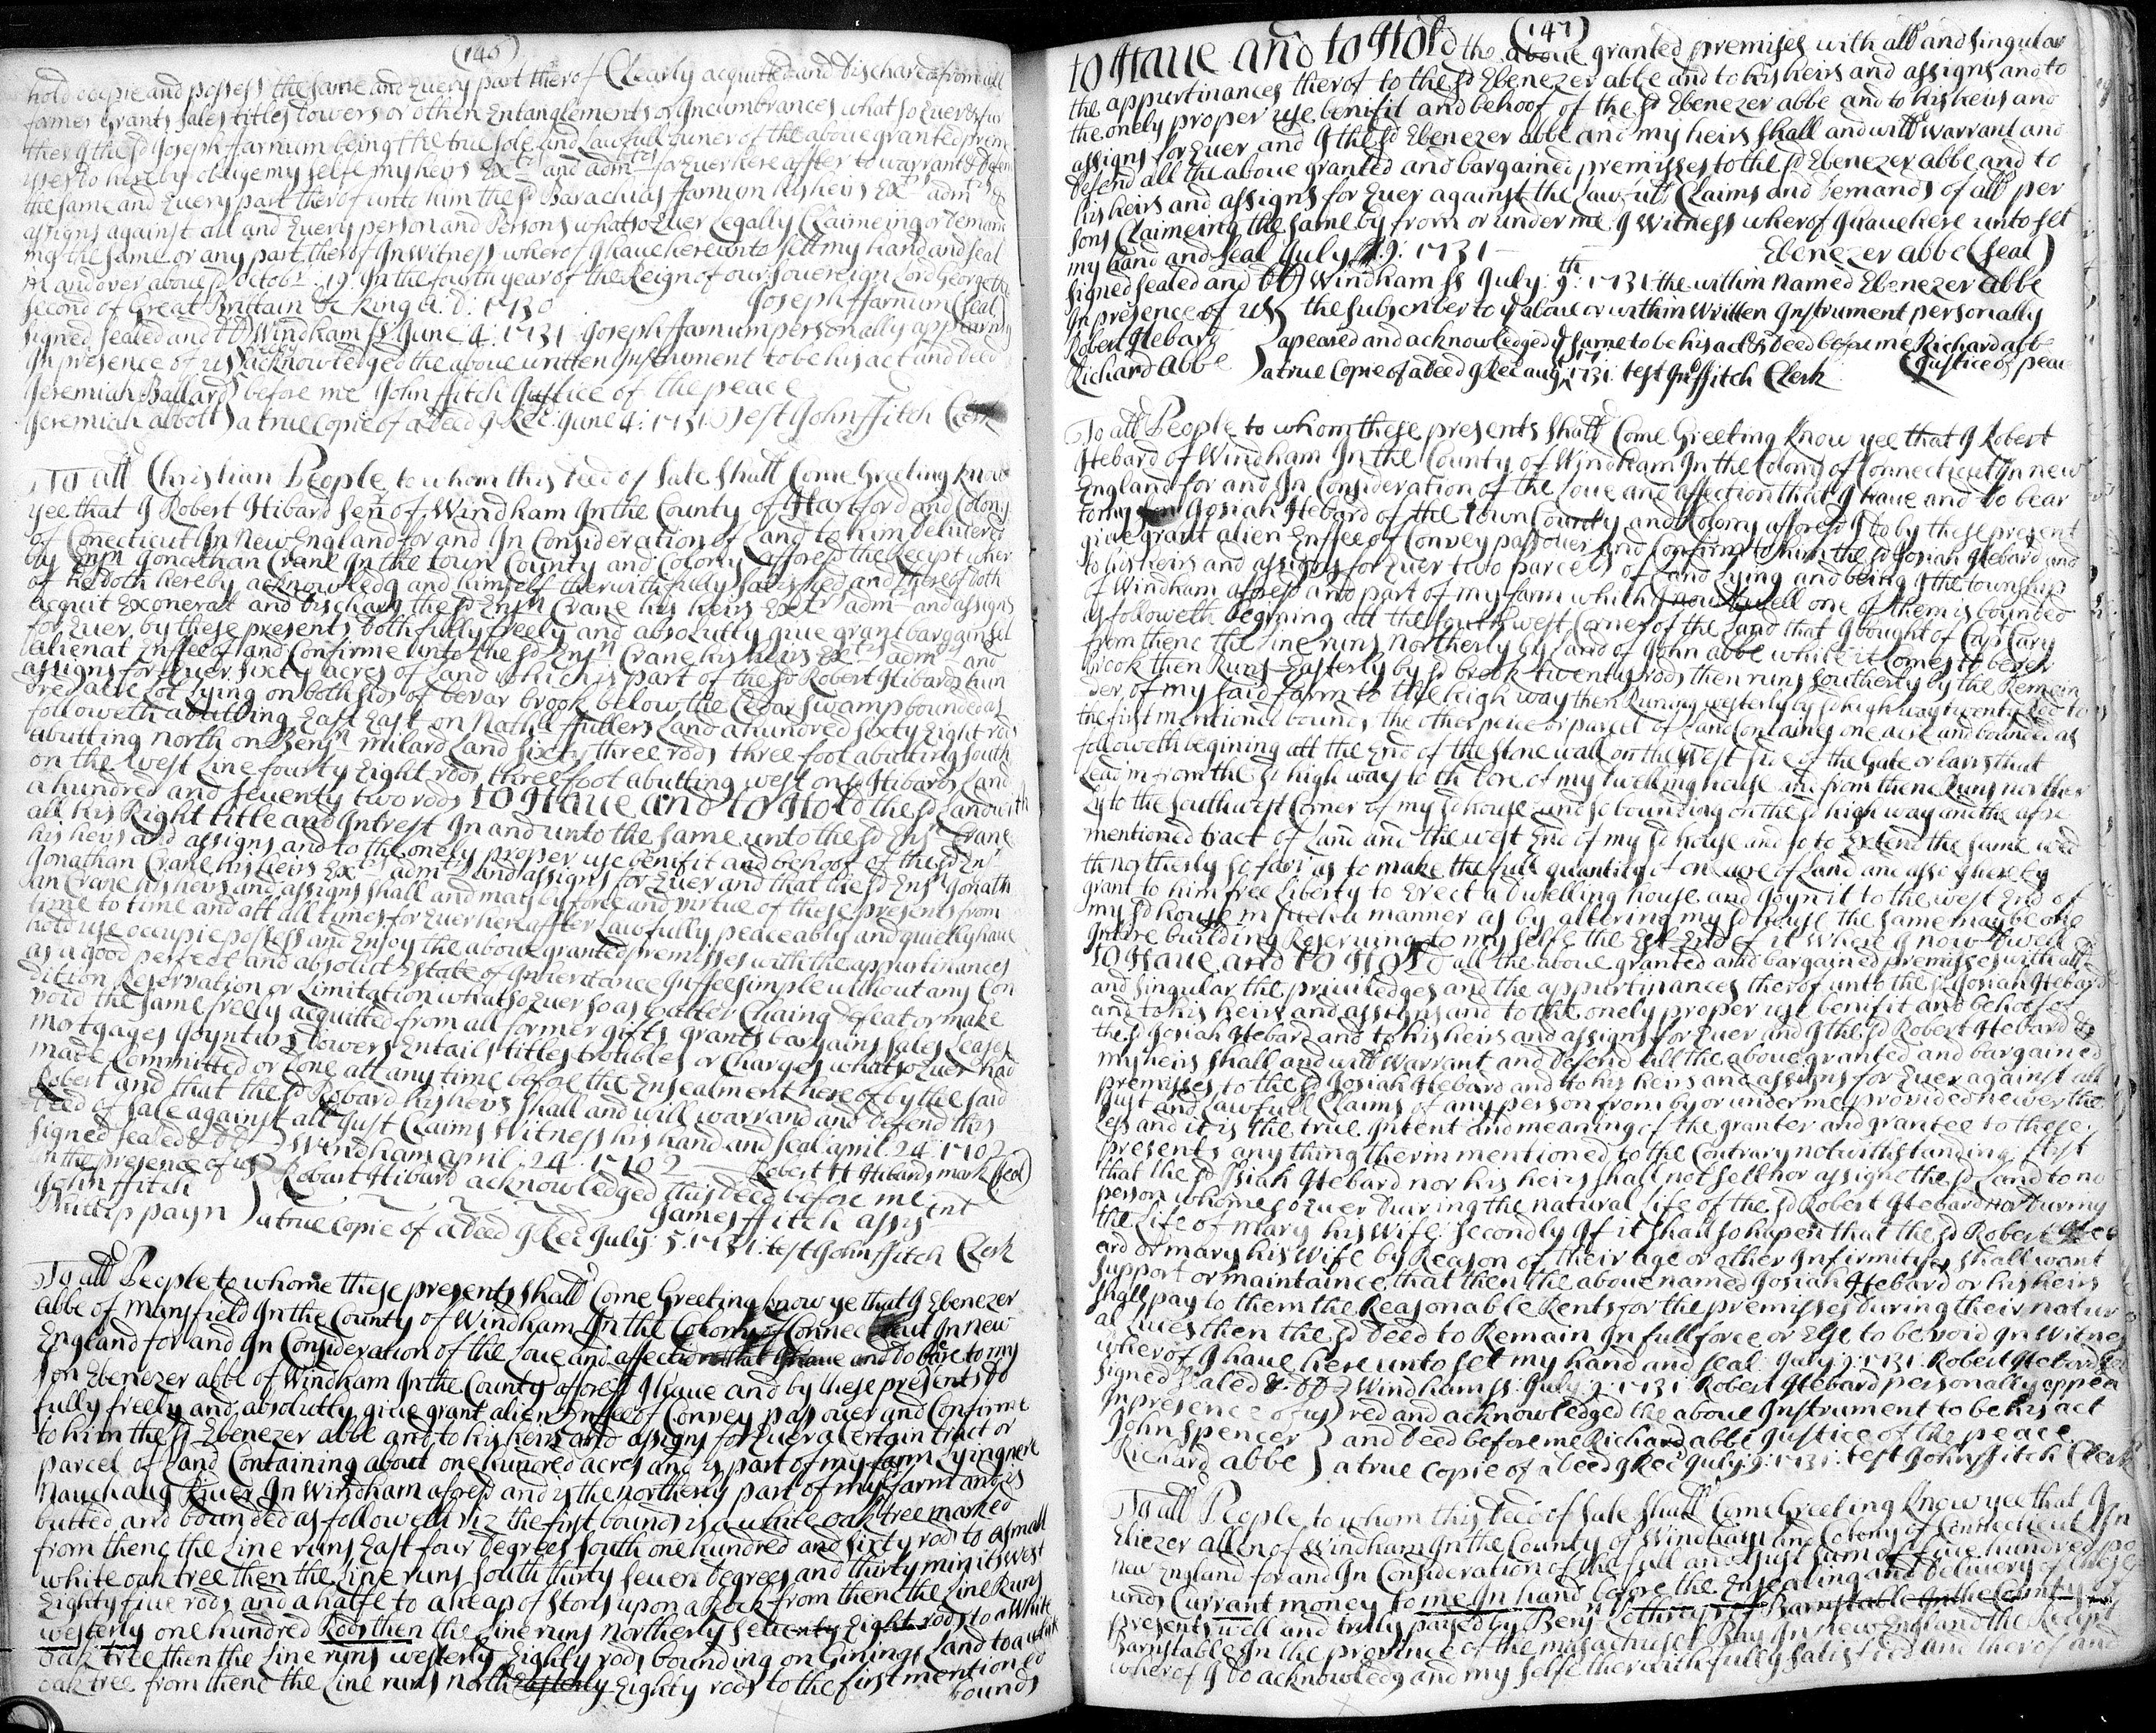 (146)
hold occpie and possess the same and Euery part therof Clearly acquitted and Discharedfrom all
former Grants sales titles Dowers or other Entanglements or Incumbrances what so Euer & fur
ther I the sd Joseph ffarnum being the true sole and Lawfull owner of the aboue granted prem
isses Do hereby oblige my selfe my heirs Extrs and admtrs for Euer here affter to warrant & Defen
the same and Euery part therof unto him the sd Barachias ffarnum his heirs Exrs admrs &
assigns against all and Euery person and Persons whatsoEuer Legally Claimeing or Deman
ing the same or any part therof In Witness wherof I haue hereunto sett my hand and seal
in andover aboue sd octobr: 19: In the fourth year of the Reign of our Souereign Lord George the
second of Great Brittain &c King A: D: 1730 Joseph ffarnum (seal)
signed sealed and DD Windham ss June 4: 1731 Joseph ffarnum personally appearing
In presence of us acknowledged the aboue written Instrument to be his act and deed
Jeremiah Ballard before me John ffitch Justice of the peace
Jeremiah abbott a true Copie of a Deed I Rec: June 4: 1731: Test John ffitch Clerk
To all Christian People to whom this Deed of sale shall Come Greeting know
yee that I Robert Hibard senr of Windham In the County of Hartford and Colony
of Conecticut In New England for and In Consideration of Land to him Deliuered
by Ensn Jonathan Crane In the town County and Colony afforesd the Receipt wher
of he doth hereby acknowledg and himself therwith fully satisfied and therof doth
acquit Exonerat and Discharg the sd Ensn Crane his heirs Extrs admrs and assigns
for Euer by these presents Doth fully freely and absolutly giue grant bargain sel
alienat Enffeof and Confirme unto the sd Ensn Crane his heirs Extrs admrs and
assigns for Euer sixty acres of Land which is part of the sd Robert Hibards hun
dred acre Lot Lying on both sids of bevar brook below the Cedar swamp bounded as
followeth abutting East East on Nathll ffullers Land a hundred sixty Eight rods
abutting North on Benjn milard Land sixty three rods three foot abutting south
on the west Line fourty Eight rods three foot abutting west on sd Hibards Land
a hundred and seuenty two rods to Haue and to Hold the sd Land with
all his Right title and Intrest In and unto the same unto the sd Ensn Crane
his heirs and assigns and to the onely proper use benifit and behoof of the sd Ensn
Jonathan Crane his heirs Exrs admrs and assigns for Euer and that the sd Ensn Jonath
an Crane his heirs and assigns shall and may by force and virtue of these presents from
time to time and att all times for Euer here affter Lawfully peaceably and quietly haue
hold use occupie possess and Enjoy the aboue granted premisses with the appurtinances
as a good perfect and absolute Estate of Inheritance In ffee simple without any Con
dition Reservation or Limitation whatsoEuer so as to alter Chaing Defeat or make
void the same freely acquitted from all former gifts grants bargains sales Leases
mortgages Joynturs Dowers Entails titles troubles or Charges whatsoEuer had
made Committed or Done att any time before the Ensealment here of by the said
Robert and that the sd Robard his heirs shall and will warrand and Defend this
Deed of sale against all Just Claims Witness his hand and seal april 24: 1702
signed sealed & DD Windham april: 24: 1702 Robert H Hibards mark (seal)
In the presence of us Robart Hibard acknowledged this Deed before me
John ffitch James ffitch assist
Phillip payn a true Copie of a Deed I Rec July: 5: 1731: test John ffitch Clerk
To all People to whome these presents shall Come Greeting know ye that I Ebenezer
abbe of mansfield In the County of Windham In the Colony of Connecticut In New
England for and In Consideration of the Loue and affection that I haue and Do bare to my
son Ebenezer abbe of Windham In the County afforesd I haue and by these presents do
fully freely and absolutly giue grant alien Enffeof Convey pass ouer and Confirme
to him the sd Ebenezer abbe and to his heirs and assigns for Euer a Certain tract or
parcel of Land Containing about one hundred acres and is part of my farm Lying nere
Nauchaug Riuer In Windham afresd and is the northerly part of my farm and is
butted and bounded as followeth viz the first bounds is a white oak tree marked
from thenc the Line runs East four Degrees south one hundred and sixty rods to a small
white oak tree then the Line runs south thirty seuen Degrees and thirty minits west
Eighty fiue rods and a halfe to a heap of stons upon a Rock from thenc the Line Runs
westerly one hundred Rods then the Line runs northerly seuenty Eight rods to a White
oak tree then the Line runs westerly Eighty rods bounding on Ginings Land to a white
oak tree from thenc the Line runs north Easterly Eighty rods to the first mentioned
bounds
(147)
to Haue and to Hold the aboue granted premises with all and singular
the appurtinances therof to the sd Ebenezer abbe and to his heirs and assigns and to
the onely proper use benifit and behoof of the sd Ebenezer abbe and to his heirs and
assigns for Euer and I the sd Ebenezer abbe and my heirs shall and will warrant and
Defend all the aboue granted and bargained premisses to the sd Ebenezer abbe and to
his heirs and assigns for Euer against the Lawfull Claims and Demands of all per
sons Claimeing the same by from or under me: I Witness wherof I haue here unto set
my hand and seal July 9: 1731 Ebenezer abbe (seal)
signed sealed and DD Windham ss July: 9th: 1731 the within named Ebenezer abbe
In presence of us the subscriber to ye aboue or within written Instrument personally
Robert Hebard apeared and acknowledged ye same to be his act & Deed before me Richard abbe
Richard Abbe a true Copie of a Deed I Rec aug: 1731: test Jn ffitch Clerk Justice of peace
To all People to whom these presents shall Come Greeting know yee that I Robert
Hebard of Windham In the County of Windham In the Colony of Connecticut In new
England for and In Consideration of the Loue and affection that I haue and do bear
to my son Josiah Hebard of the town County and Colony afforesd I do by these present
giue grant alien Enffeof Convey pass ouer and Confirm to him the sd Josiah Hebard and
to his heirs and assigns for Euer two parcels of Land Lying and being I the township
of Windham afforesd and part of my farm which I now Dwell one of them is bounded
as followeth begining att the southwest Corner of the Land that I bought of Cap Cary
from thenc the Line runs Northerly by Land of John abbe while it Comes to bever
brook then Runs Easterly by sd brook twenty rods then runs southerly by the Remein
der of my said farm to the high way then Runing westerly by sd high way twenty Rod to
the first mentioned bounds the other peice or parcel of Land Containes one acre and bounded as
followeth begining att the End of the stone wall on the West side of the Gate or bars that
Lead in from the sd high way to the Dore of my Dwelling house and from thenc Runs norther
Ly to the southwest Corner of my sd house and so bounding on the sd high way and the afore
mentioned tract of Land and the west End of my sd house and so to Extend the same wed
th northerly so farr as to make the full quantity of one acre of Land and also I hereby
grant to him free Liberty to Erect a Dwelling house and Joyn it to the west End of
my sd house in such a manner as by altering my sd house the same may be one
Intire building Reserving to my selfe the Est End of it Where I now Dwell
to Haue and to Hold all the aboue granted and bargained premisses with all
and singular the priuiledges and the appurtinances therof unto the sd Josiah Hebard
and to his heirs and assigns and to the onely proper use benifit and behoof of
the sd Josiah Hebard and to his heirs and assigns for Euer and I the sd Robert Hebard &
my heirs shall and will Warrant and Defend all the aboue granted and bargained
premisses to the sd Josiah Hebard and to his heirs and assigns for Euer against all
Just and Lawfull Claims of any person from by or under me provided never the
Less and it is the true Intent and meaning of the granter and grantee to these
presents any thing therin mentioned to the Contrary notwithstanding first
that the sd Josiah Hebard nor his heirs shall not sell nor assigne the sd Land to no
person whomesoEuer During the natural Life of the sd Robert Hebard nor During
the Life of mary his Wife: secondly If it shall so hapen that the sd Robert Heb
ard or mary his Wife by Reason of their age or other Infirmitys shall want
support or maintaince that then the aboue named Josiah Hebard or his heirs
shall pay to them the Reasonable Rents for the premisses During their natur
al Liues then the sd Deed to Remain In full force or Else to be void In Witness
wherof I haue here unto set my hand and seal July: 9: 1731 Robert Hebard
signed sealed & DD Windham ss: July: 9: 1731 Robert Hebard personally appea
In presence of us red and acknowledged the aboue Instrument to be his act
John Spencer and Deed before me Richard abbe Justice of the peace
Richard abbe a true Copie of a Deed I Rec July: 9: 1731: test John ffitch Clerk
To all People to whom this Deed of sale shall Come Greeting know yee that I
Eliezer allen of Windham In the County of Windham and Colony of Connecticut In
New England for and In Consideration of the full and Just sum of fiue hundred po
unds Currant money to me In hand before the Ensealing and Delivery of these
presents well and truly payed by Benj: Lothrop of Barnstable In the County of
Barnstable In the province of the masachuset Bay In new England the Receipt
wherof I Do acknowledg and my selfe therwith fully satisfied and therof and